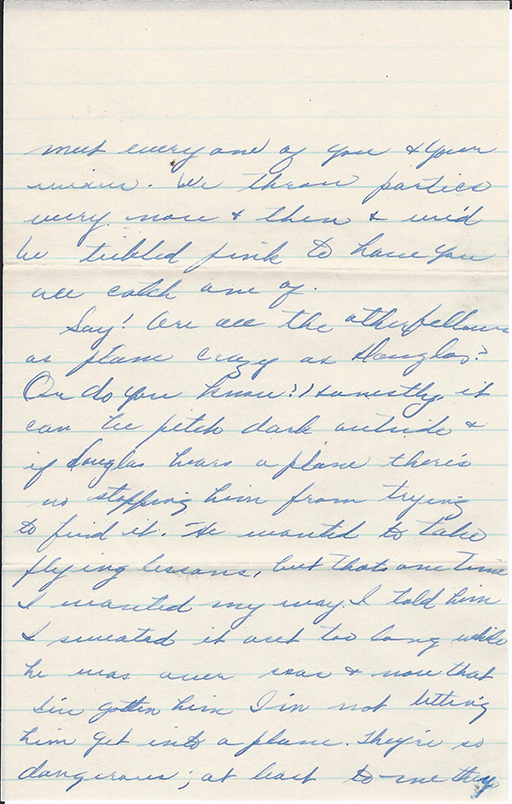 meet every one of you & your
. We throw parties
every now & then & we'd
be tickled pink to have you
all catch one of.
Say! Are all the other fellows
as plane crazy as Douglas?
Or do you know? Honestly, it
can be pitch dark outside &
if Douglas hears a plane there's
no stopping him from trying
to find it. He wanted to take
flying lessons, but thats one time
I wanted my way. I told him
I sweated it out too long while
he was over seas & now that
I've gotten him I'm not letting
him get into a plane. They're so
dangerous; at least to me they